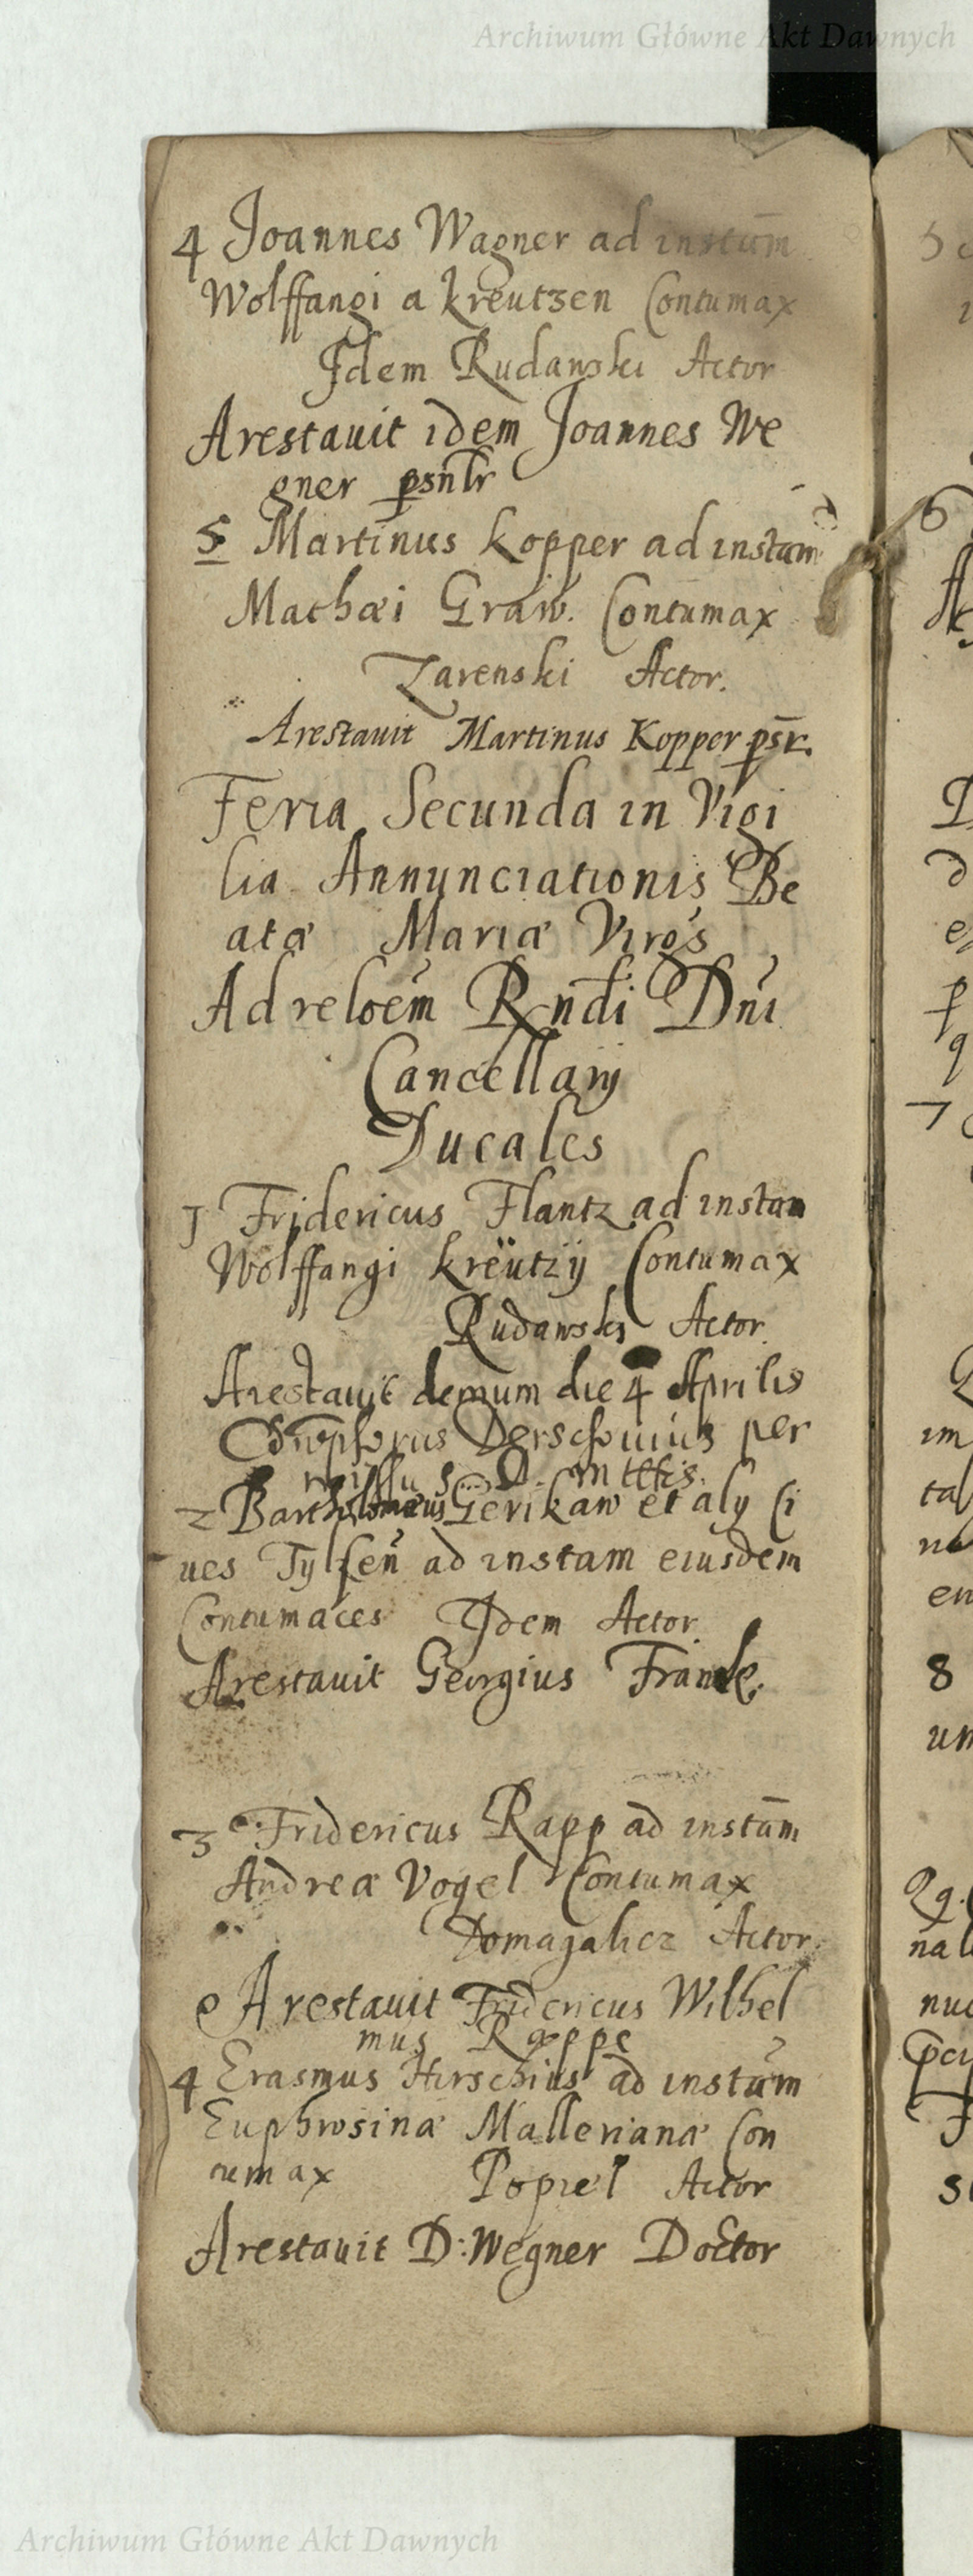 Archiwum Główne Akt Dawnych
4 Joannes Wagner ad instãm
Wolffangi a kreutzen Contumax
Jdem Rudawski Actor
Arestauit idem Joannes We
gner psnlr
5 Martinus kopper ad instam
Mathæi Graw. Contumax
Zarenski Actor.
Arestauit Martinus Kopper psr.
Feria Secunda in Vigi
lia Annunciationis Be
atæ Mariæ Virgs
Ad reloem Rndi Dni
Cancellarij
Ducales
1 Fridericus Flantz ad instan
Wolffangi kreutzij Contumax
Rudawski Actor
Arestauit demum die 4 Aprilis
Derschouius per
2 Bartholomæus Gerikaw et alij Ci
ues Tylsen ad instam eiusdem
Contumaces Jdem Actor
Arestauit Georgius Franck.
3 Fridericus Rapp ad instãm
Andreæ Vogel Contumax
Domagalicz Actor
Arestauit Fridericus Wilhel
mus Rappe
4 Erasmus Hirschius ad instam
Euphrosinæ Mallerianæ Con
tumax Popiel Actor
Arestauit D: Wegner Doctor
Archiwum Główne Akt Dawnych